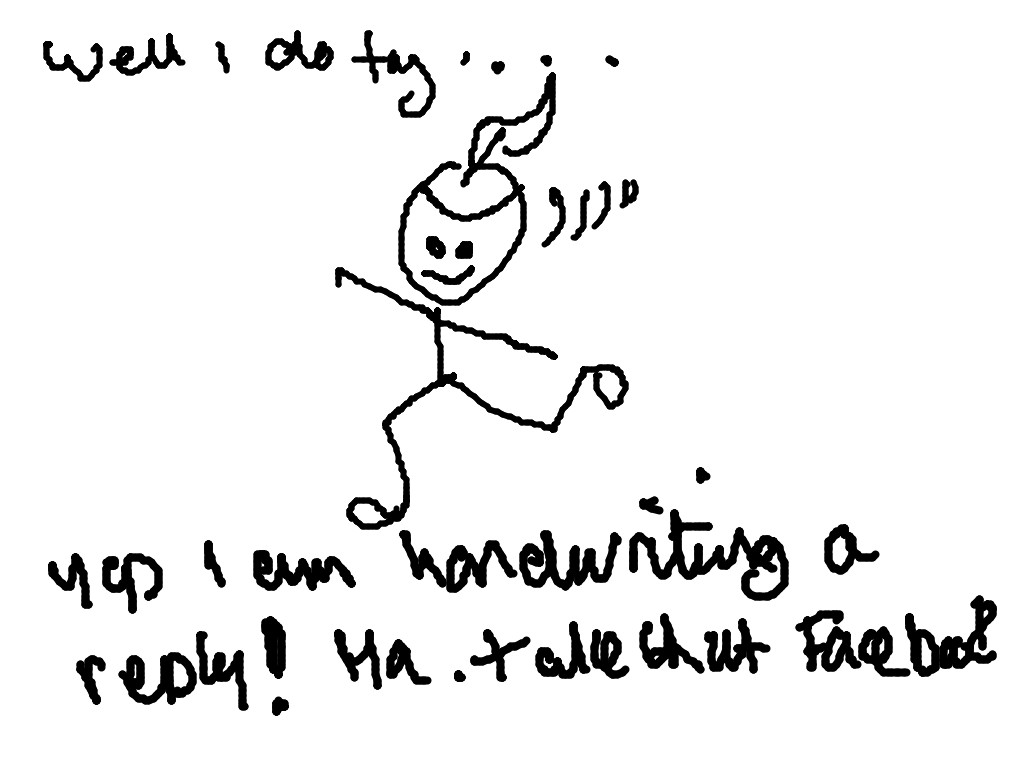 well i do try . . . .
yep i am handwriting a
reply! Ha. take that Facebook